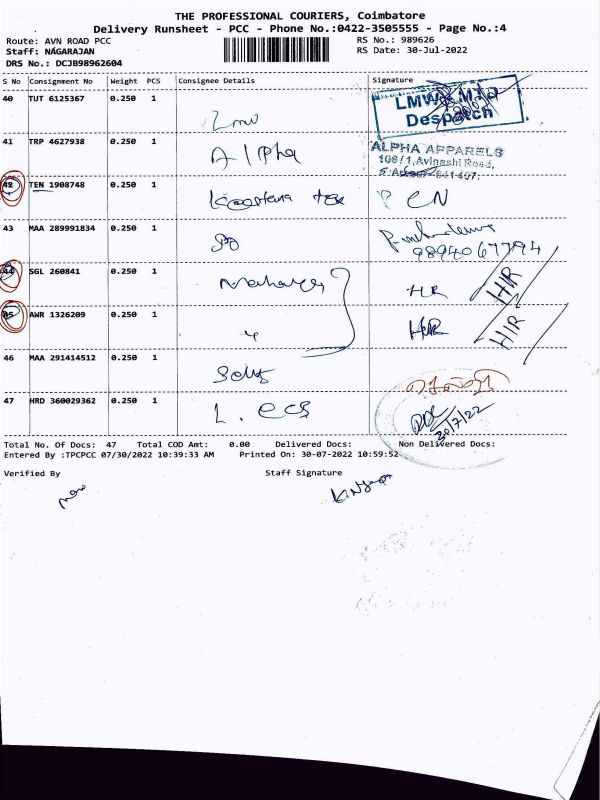 THE PROFESSIONAL COURIERS, Coimbatore
Delivery Runsheet - PCC - Phone No.:0422-3505555 - Page No.:4
Route: AVN ROAD PCC RS No.: 989626
Staff: NAGARAJAN RS Date: 30-Jul-2022
DRS No.: DCJB98962604
S No Consignment No Weight PCS Consignee Details Signature
40 TUT 6125367 0.250 1 Lmw LMW
Despatch
41 TRP 4627938 0.250 1 Alpha ALPHA APPARELS
106/1, Avinashi Road,
42 TEN 1908748 0.250 1
43 MAA 289991834 0.250 1 9894067794
44 SGL 260841 0.250 1 HR HIR
45 AWR 1326209 0.250 1 " HIR
46 MAA 291414512 0.250 1
47 HRD 360029362 0.250 1 L. ecs 30/7/22
Total No. Of Docs: 47 Total COD Amt: 0.00 Delivered Docs: Non Delivered Docs:
Entered By :TPCPCC 07/30/2022 10:39:33 AM Printed On: 30-07-2022 10:59:52
Verified By Staff Signature